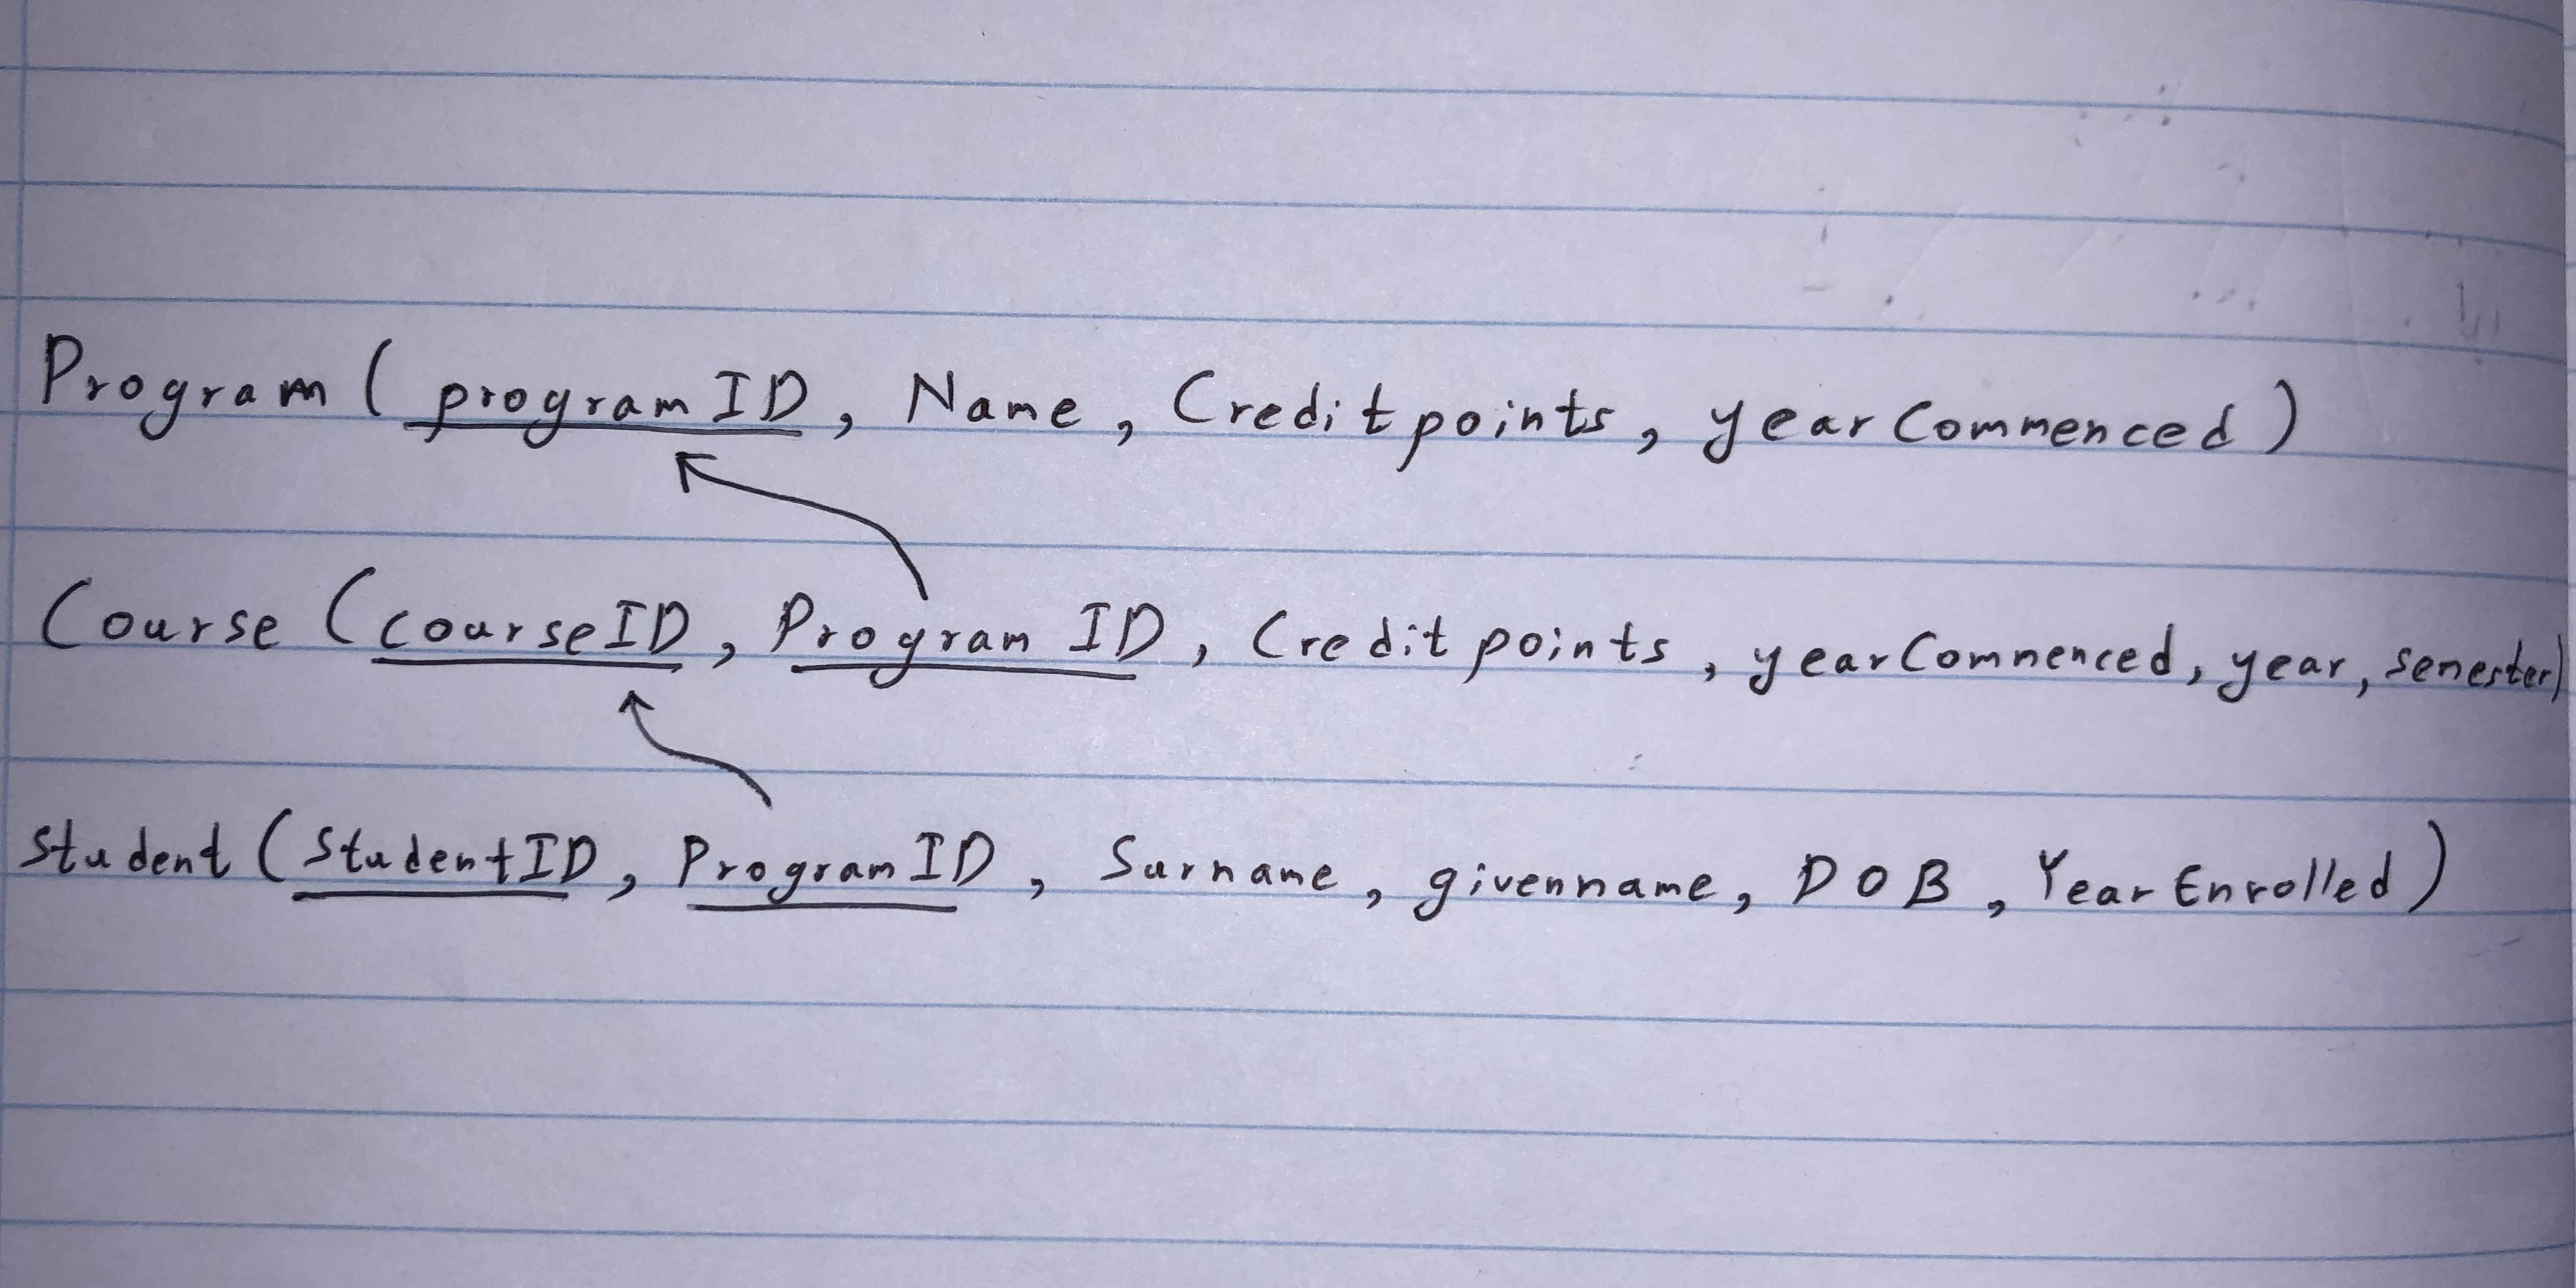 Program ( programID, Name, Creditpoints, yearCommenced )
Course ( courseID, Program ID, Credit points, yearCommenced, year, semester)
Student ( StudentID, ProgramID, Surname, givenname, DOB, YearEnrolled )